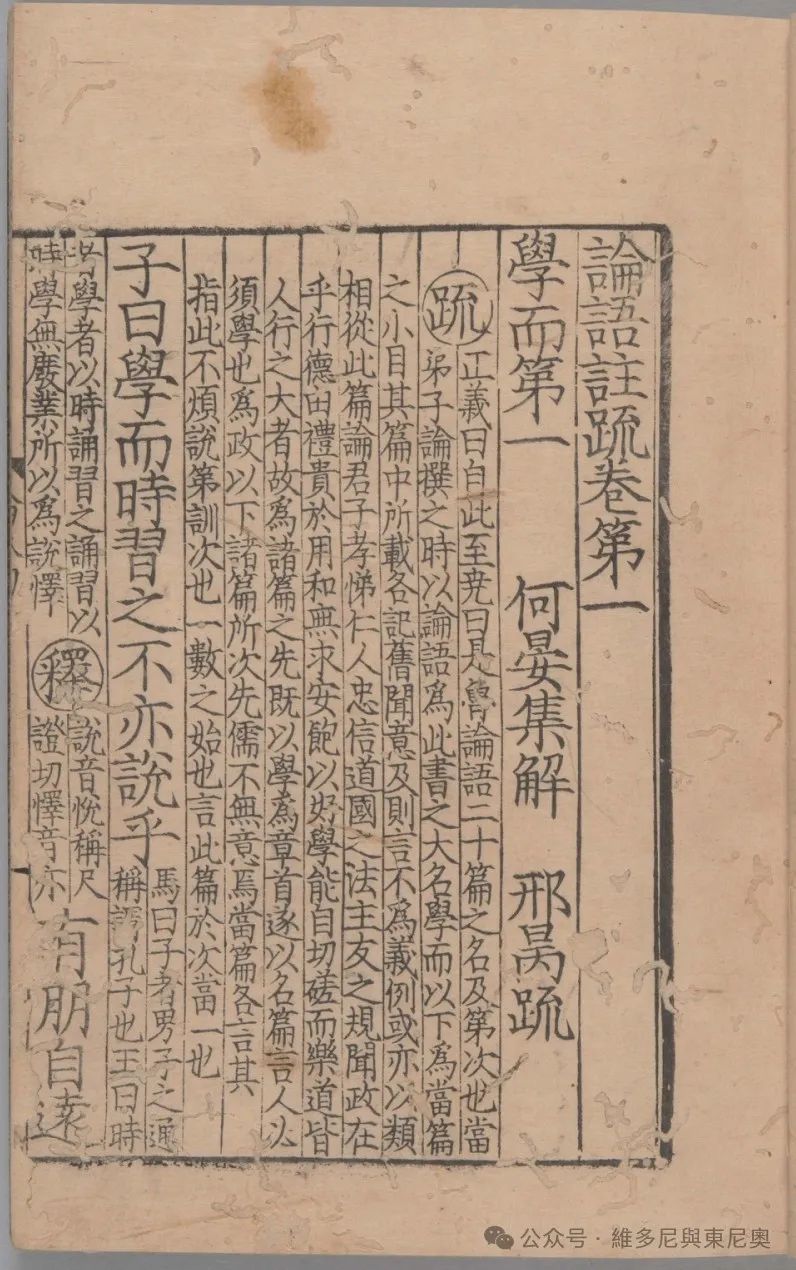 論語註疏卷第一
學而第一　何晏集解　邢昺疏
疏　正義曰自此至堯曰是魯論語二十篇之名及第次也當
弟子論撰之時以論語爲此書之大名學而以下爲當篇
之小目其篇中所載各記舊聞意及則言不爲義例或亦以類
相從此篇論君子孝悌仁人忠信道國之法主友之規聞政在
乎行德由禮貴於用和無求安飽以好學能自切磋而樂道皆
人行之大者故爲諸篇之先既以學爲章首遂以名篇言人必
須學也爲政以下諸篇所次先儒不無意焉當篇各言其
指此不煩說第訓次也一數之始也言此篇於次當一也
子曰學而時習之不亦說乎
馬曰子者男子之通
稱謂孔子也王曰時
者學者以時誦習之誦習以
時學無廢業所以爲說懌
釋
說音悅稱尺
證切懌音亦
有朋自遠
公众号·維多尼與東尼奧